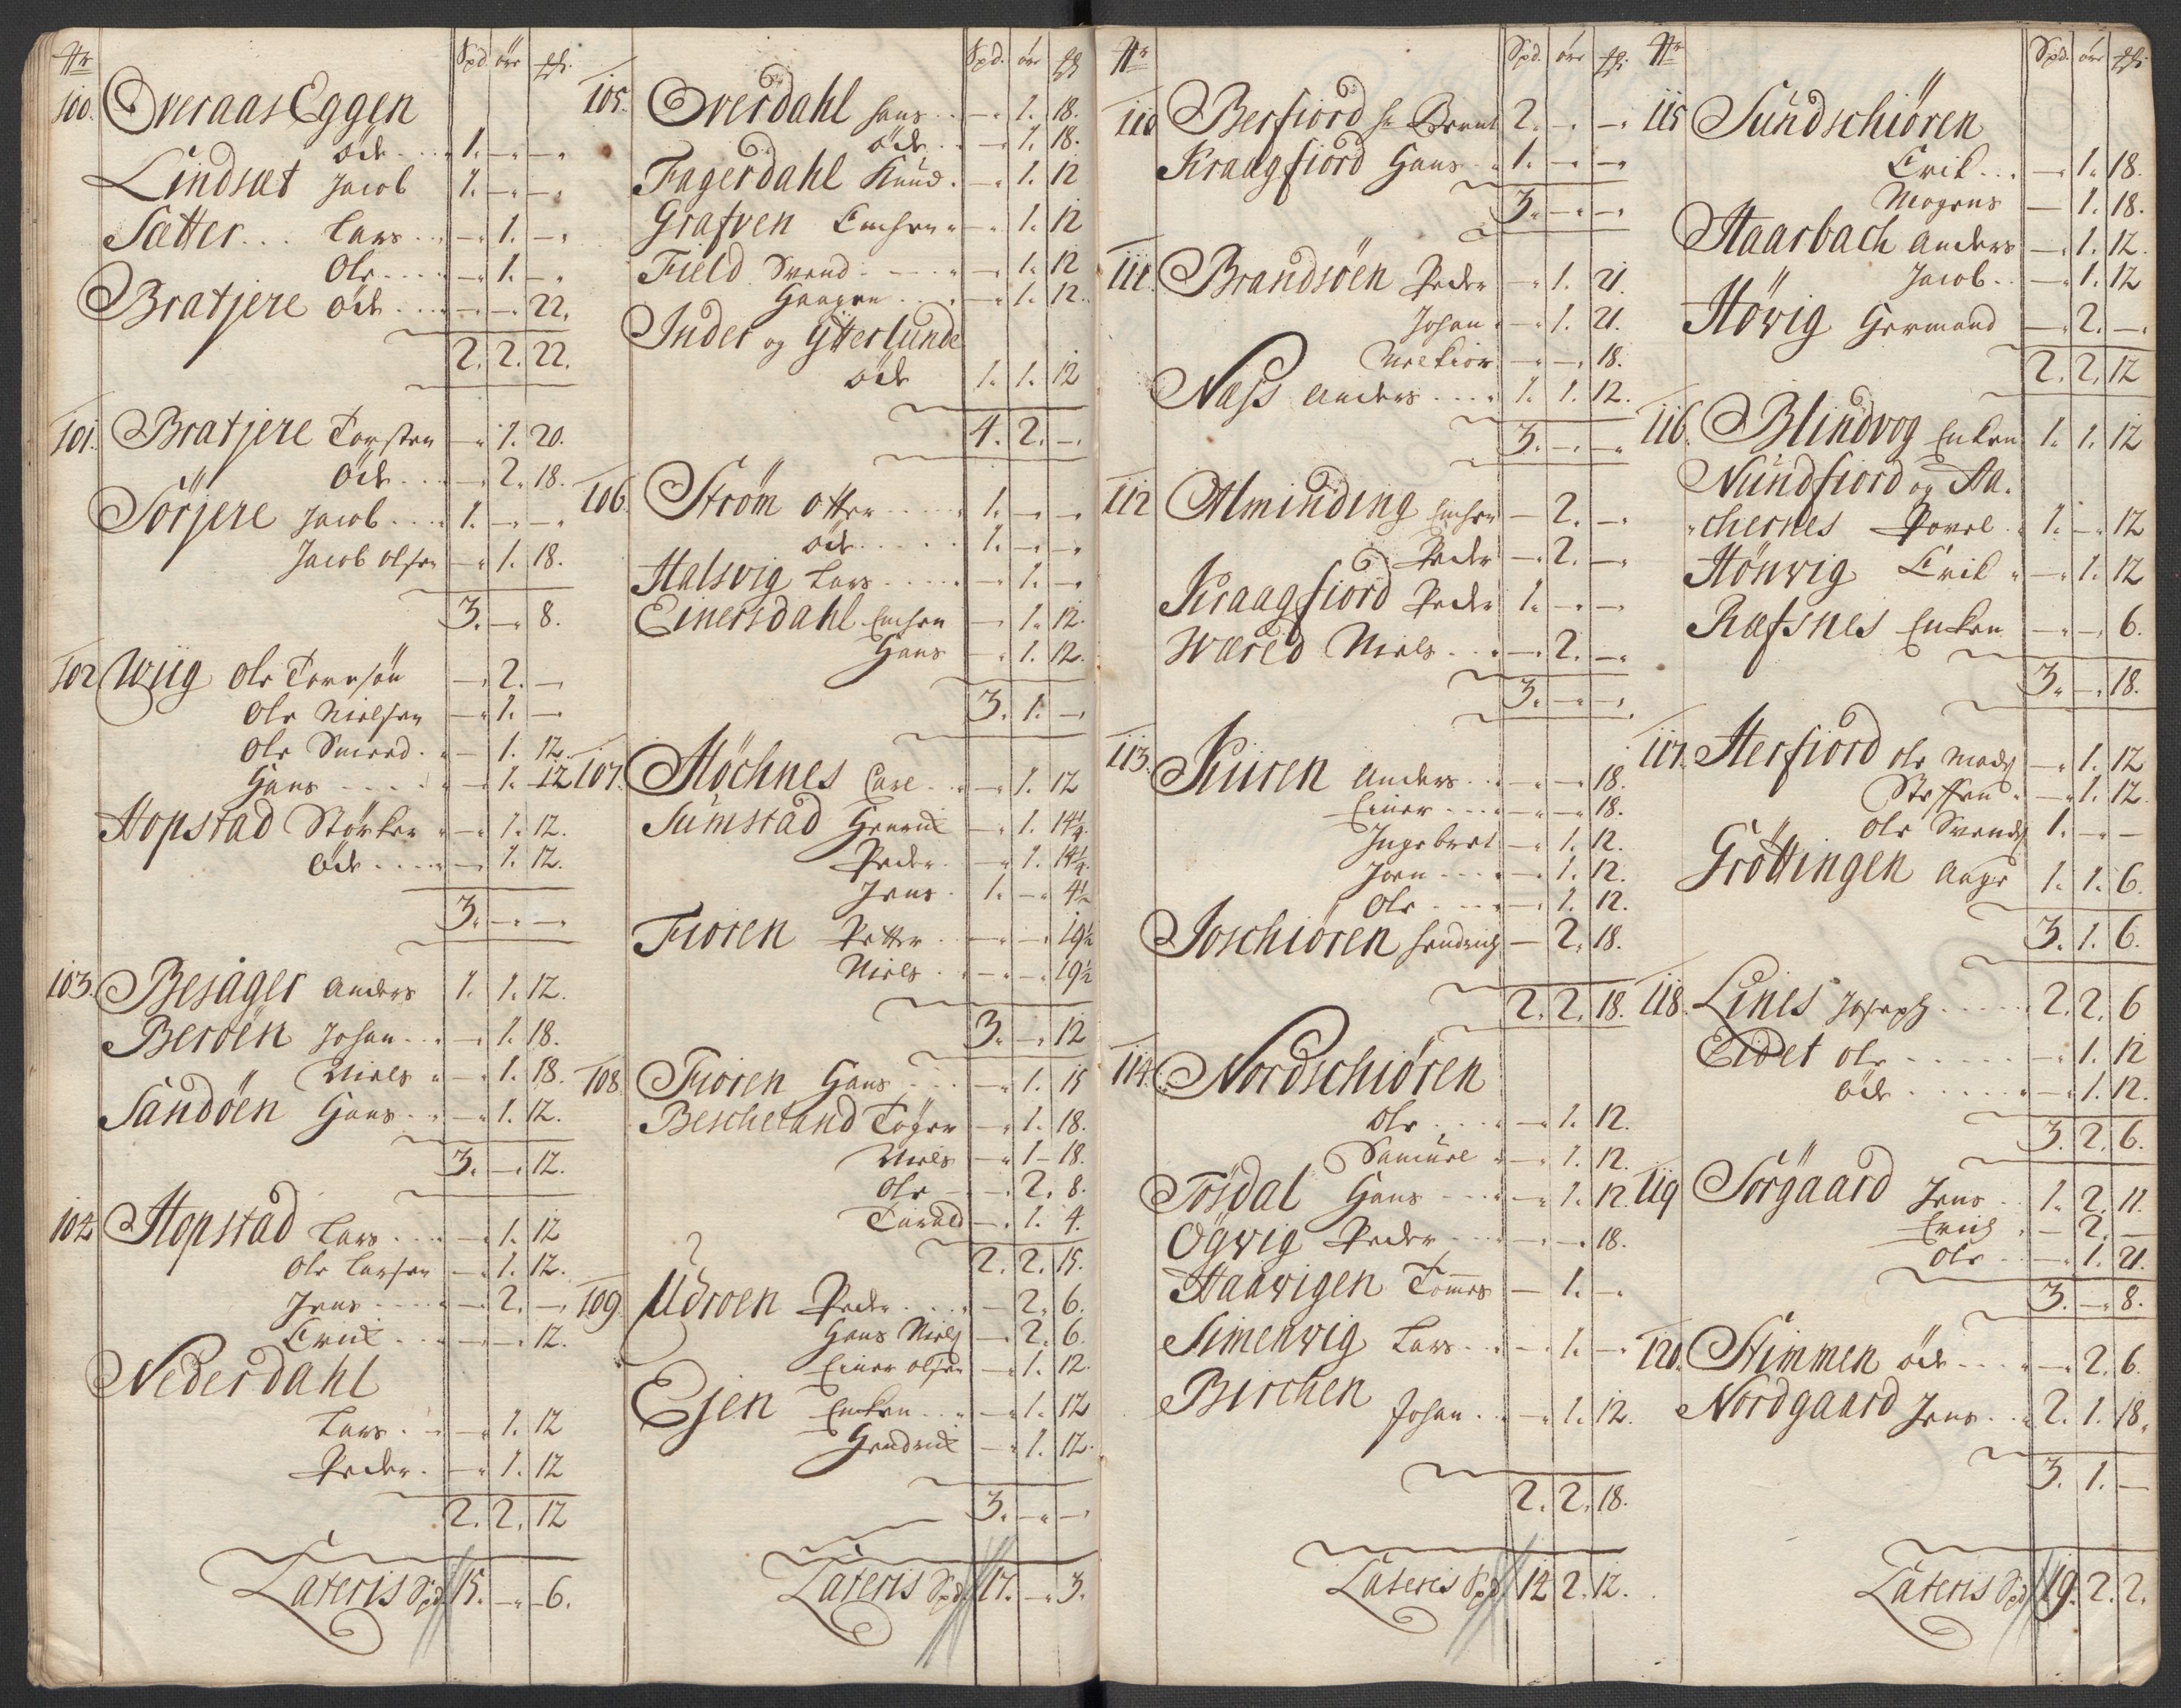 No Spd ör ſch
100. Overaas Eggen
öde 1. - -
Lindsæt Jacob 1. - -
Sætter Lars - 1. -
Ole - 1. -
Bratjere öde - - 22.
2. 2. 22.
101. Bratjere Torsten - 1. 20.
öde - 2. 18.
Sörjere Jacob 1. - -
Jacob olsen - 1. 18.
3. - 8.
102 Wiig Ole - 2. -
Ole Nielsen - 1. -
Ole - 1. 12.
Hans - 1. 12
Hopstad Störker - 1. 12.
öde - 1. 12.
3. - -
103. Besager Anders 1. 1. 12.
Beröen Johan - 1. 18.
Niels - 1. 18.
Sandöen Hans - 1. 12.
3. - 12.
104 Hopstad Lars - 1. 12
Ole Larsen - 1. 12.
Jens - 2. -
Erich - - 12.
Nederdahl
Lars - 1. 12
Peder - 1. 12
2. 2. 12
Lateris Spd 15. - 6.
Spd. ör ſch
105. Overdahl Hans - 1. 18.
öde - 1. 18.
Fagerdahl Knud - 1. 12
Grafven - 1. 12
Field Svend - 1. 12
Haagen - 1. 12.
Inder og Ytterlunde
öde 1. 1. 12
4. 2. -
106. Ström otter 1. - -
öde 1. - -
Halsvig Lars - 1. -
Einersdahl - 1. 12.
Hans - 1. 12.
3. 1. -
107. Höchnes Carl - 1. 12
Sumstad Henrich - 1. 14½
Peder - 1. 14½
Jens 1. - 4½
Fioren Petter - - 19½
Niels - - 19½
3. - 12
108. Fioren Hans - 1. 15
Bescheland Töger - 1. 18.
Niels - 1 - 18.
Ole - 2. 8.
- 1. 4.
2. 2. 15.
109. Udroen Peder - 2. 6.
Hans Niels - 2. 6.
Einer olsen - 1. 12.
Ejen Encken - 1. 12
Hendrich - 1. 12.
3. - -
Lateris Spd 17. - 3.
No Spd. ör ſch
110 Berfiord Hr Brunt 2. - -
Kraagfiord Hans 1. - -
3. - -
111. Brandsöen Peder - 1. 21.
Johan - 1. 21.
- - 18.
Næss Anders 1. 1. 12.
3. - -
112 Alminding - 2. -
Peder - 2. -
Kraagfiord Peder 1. - -
Wæred Niels - 2. -
3. - -
113. Kiiren Anders - - 18.
Einer - - 18.
Ingebret - 1. 12.
Joen - 1. 12.
Ole - 1. 12.
Joschiören Hendrich - 2. 18.
2. 2. 18.
114. Nordschiören
Ole - 1. 12.
Samuel - 1. 12.
Tösdal Hans - 1. 12.
Ögvig Peder - - 18.
Haavigen Tommes - 1. -
Simenvig Lars - 1. -
Birchen Johan - 1. 12.
2. 2. 18.
Lateris Spd 14 2. 12.
No Spd. ör ſch
115 Sundschiören
Erik - 1. 18.
Mogens - 1. 18.
Haarbach Anders - 1. 12.
Jacob - 1. 12
Hövig Hermand - 2. -
2. 2. 12
116. Blindvog Encken 1. 1. 12
Nundfiord og Aa.
chernes Povel 1. - 12
Hönvig Erik - 1. 12
Ræfsnes Encken - - 6.
3. - 18.
117. Herfiord Ole Mads - 1. 12
Steffen - 1. 12.
Ole Svends 1. - -
Gröttingen Aage 1. 1. 6.
3. 1. 6.
118. Lines Joseph 2. 2. 6
Eidet Ole - 1. 12
öde - 1. 12.
3. 2. 6.
119 Sörgaard Jens 1. 2. 11.
Erich - 2. -
Ole - 1. 21.
3. - 8.
120. Stimmen öde - 2. 6.
Nordgaard Jens 2. 1. 18.
3. 1. -
Lateris Spd 19. 2. 2.